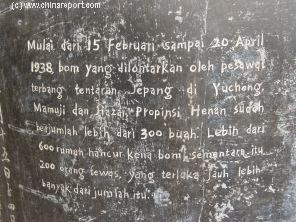 (c) www.chinareport.com
Mulai dari 15 Februari sampai 20 April
1938, bom yang dilontarkan oleh pesawat
terbang tentaran Jepang di Yucheng,
Mamuji dan Jiazai, Propinsi Henan sudah
berjumlah lebih dari 300 buah. Lebih dari
600 rumah hancur kena bom, sementara itu
200 orang tewas, yang terluka jauh lebih
banyak dari jumlah itu.